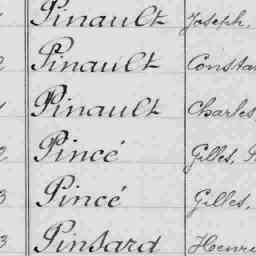 Pinault Joseph,
2 Pinault
Pinault Charles
2 Pincé Gilles,
3 Pincé Gilles,
3 Pinsard Henri